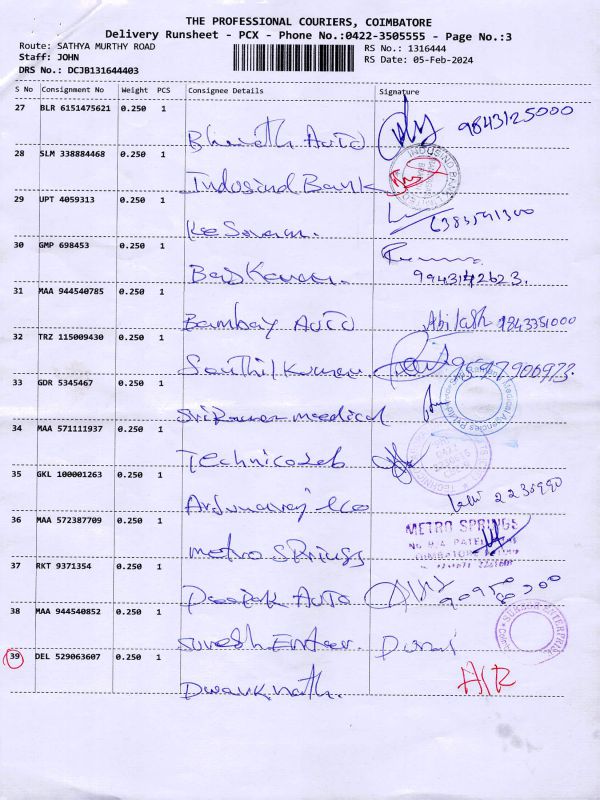 THE PROFESSIONAL COURIERS, COIMBATORE
Delivery Runsheet - PCX - Phone No.:0422-3505555 - Page No.:3
Route: SATHYA MURTHY ROAD
RS No.: 1316444
Staff: JOHN
RS Date: 05-Feb-2024
DRS No.: DCJB131644403
S No Consignment No Weight PCS Consignee Details Signature
27 BLR 6151475621 0.250 1
Bharath Auto 9843125000
28 SLM 338884468 0.250 1
Indusind Bank
29 UPT 4059313 0.250 1
6383591300
30 GMP 698453 0.250 1
9943142623.
31 MAA 944540785 0.250 1
Bambay Auto Abilash 9843351000
32 TRZ 115009430 0.250 1
Senthil Kumar 9597906973
33 GDR 5345467 0.250 1
medical
34 MAA 571111937 0.250 1
Technico
35 GKL 100001263 0.250 1
2235990
36 MAA 572387709 0.250 1
METRO SPRINGS
metro springs
37 RKT 9371354 0.250 1
Deepak Auto
38 MAA 944540852 0.250 1
Suresh Enter. Durai
39 DEL 529063607 0.250 1
Dwarknath.